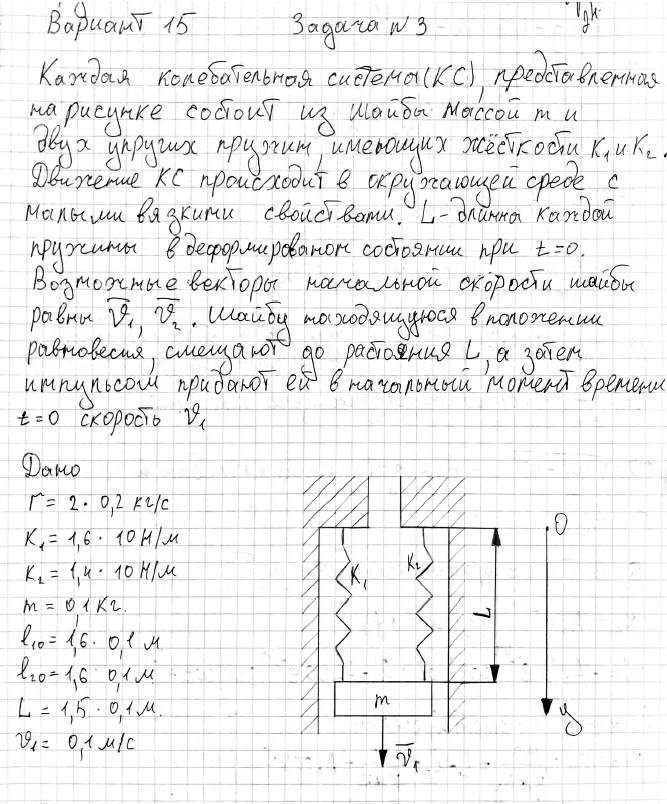 Vдн.
Вариант 15 Задача N3
Каждая колебательная система (КС), представленная
на рисунке состоит из шайбы массой m и
двух упругих пружин, имеющих жёсткости К₁ и К₂.
Движение КС происходит в окружающей среде с
малыми вязкими свойствами. L-длинна каждой
пружины в деформированом состоянии при t=0.
Возможные векторы начальной скорости шайбы
равны V̅₁, V̅₂. Шайбу находящуюся в положении
равновесия, смещают до растояния L, а затем
импульсом придают ей в начальный момент времени
t=0 скорость V₁
Дано
r = 2 · 0,2 кг/с
К₁ = 1,6 · 10 Н/м
К₂ = 1,4 · 10 Н/м
m = 0,1 кг.
l₁₀ = 1,6 · 0,1 м
l₂₀ = 1,6 0,1 м
L = 1,5 · 0,1 м.
V₁ = 0,1 м/с
O
К₁
К₂
L
m
y
V̅₁